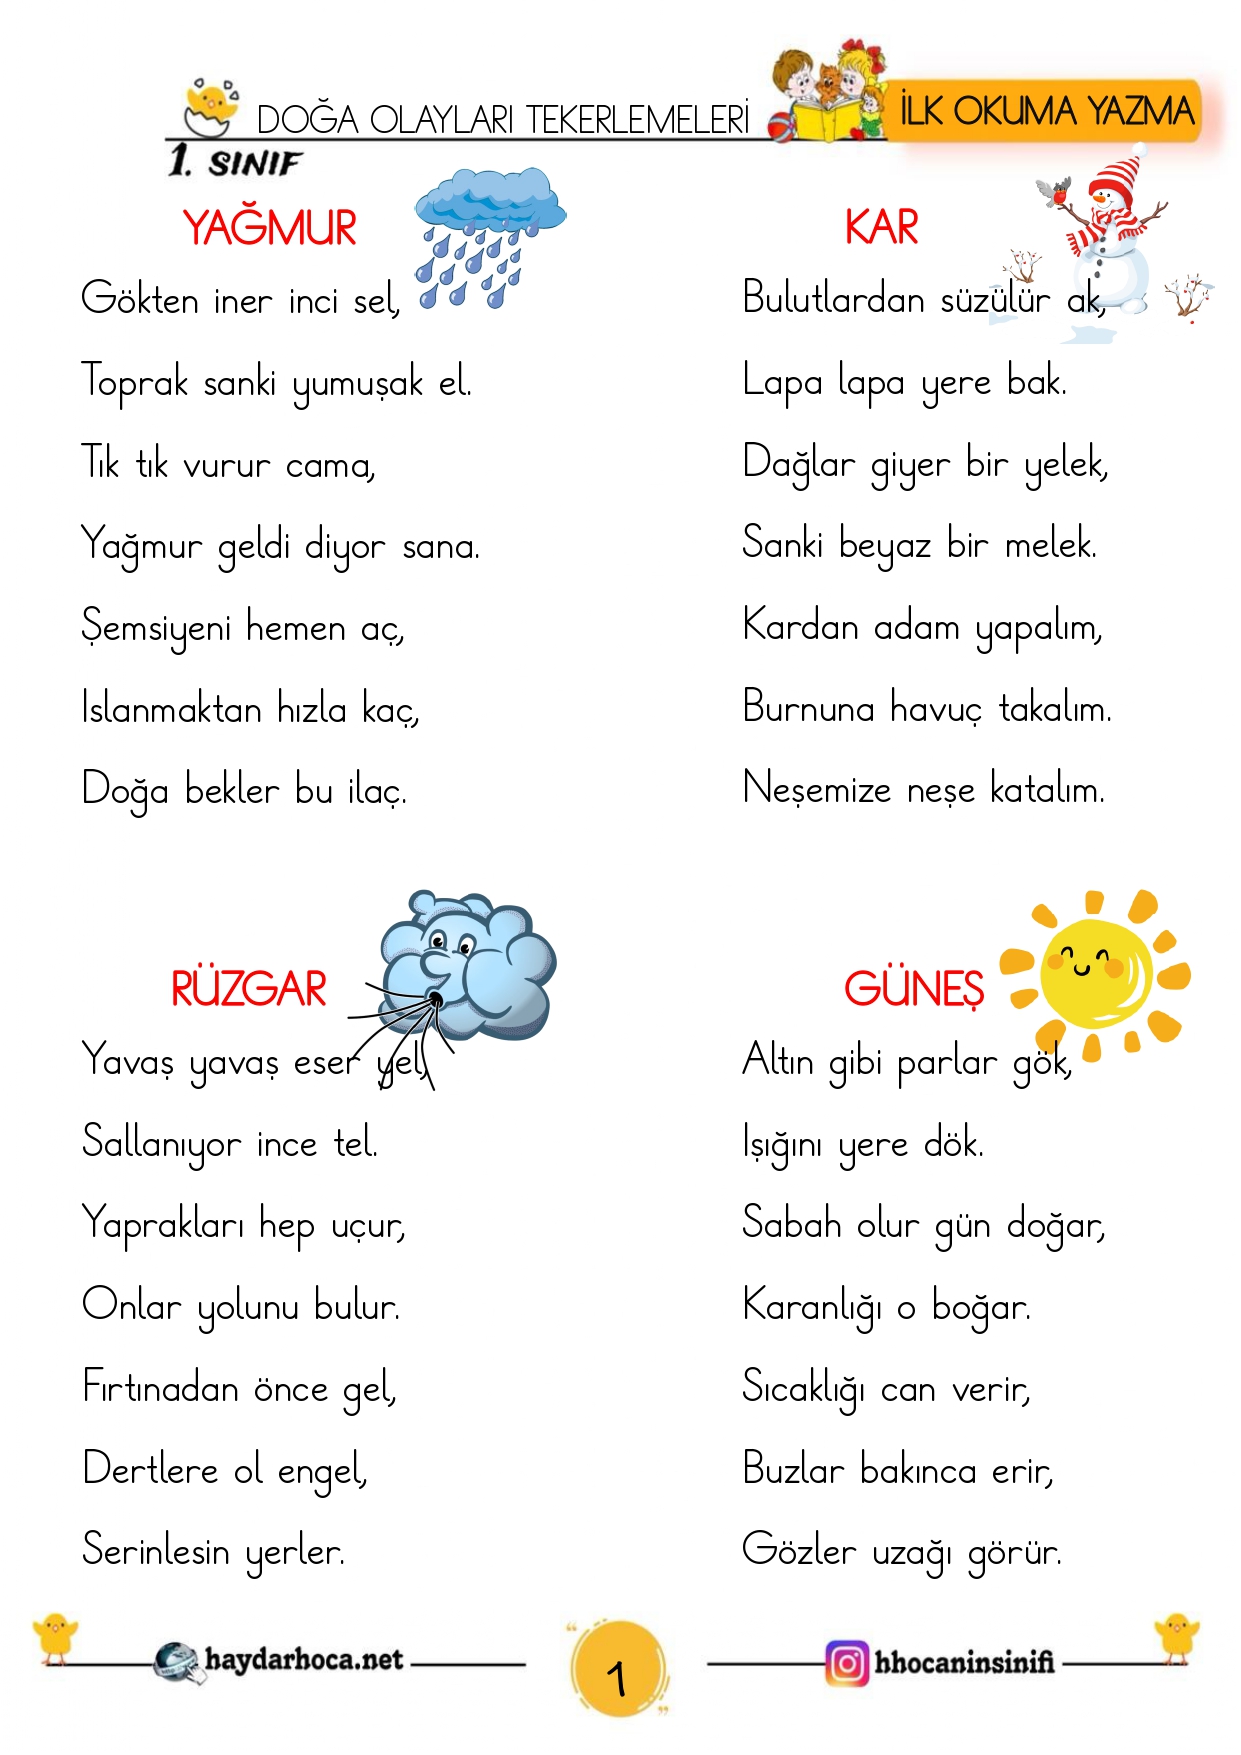 DOĞA OLAYLARI TEKERLEMELERİ
İLK OKUMA YAZMA
1. SINIF
YAĞMUR
Gökten iner inci sel,
Toprak sanki yumuşak el.
Tık tık vurur cama,
Yağmur geldi diyor sana.
Şemsiyeni hemen aç,
Islanmaktan hızla kaç,
Doğa bekler bu ilaç.
KAR
Bulutlardan süzülür ak,
Lapa lapa yere bak.
Dağlar giyer bir yelek,
Sanki beyaz bir melek.
Kardan adam yapalım,
Burnuna havuç takalım.
Neşemize neşe katalım.
RÜZGAR
Yavaş yavaş eser yel,
Sallanıyor ince tel.
Yaprakları hep uçur,
Onlar yolunu bulur.
Fırtınadan önce gel,
Dertlere ol engel,
Serinlesin yerler.
GÜNEŞ
Altın gibi parlar gök,
Işığını yere dök.
Sabah olur gün doğar,
Karanlığı o boğar.
Sıcaklığı can verir,
Buzlar bakınca erir,
Gözler uzağı görür.
haydarhoca.net
1
hhocaninsinifi